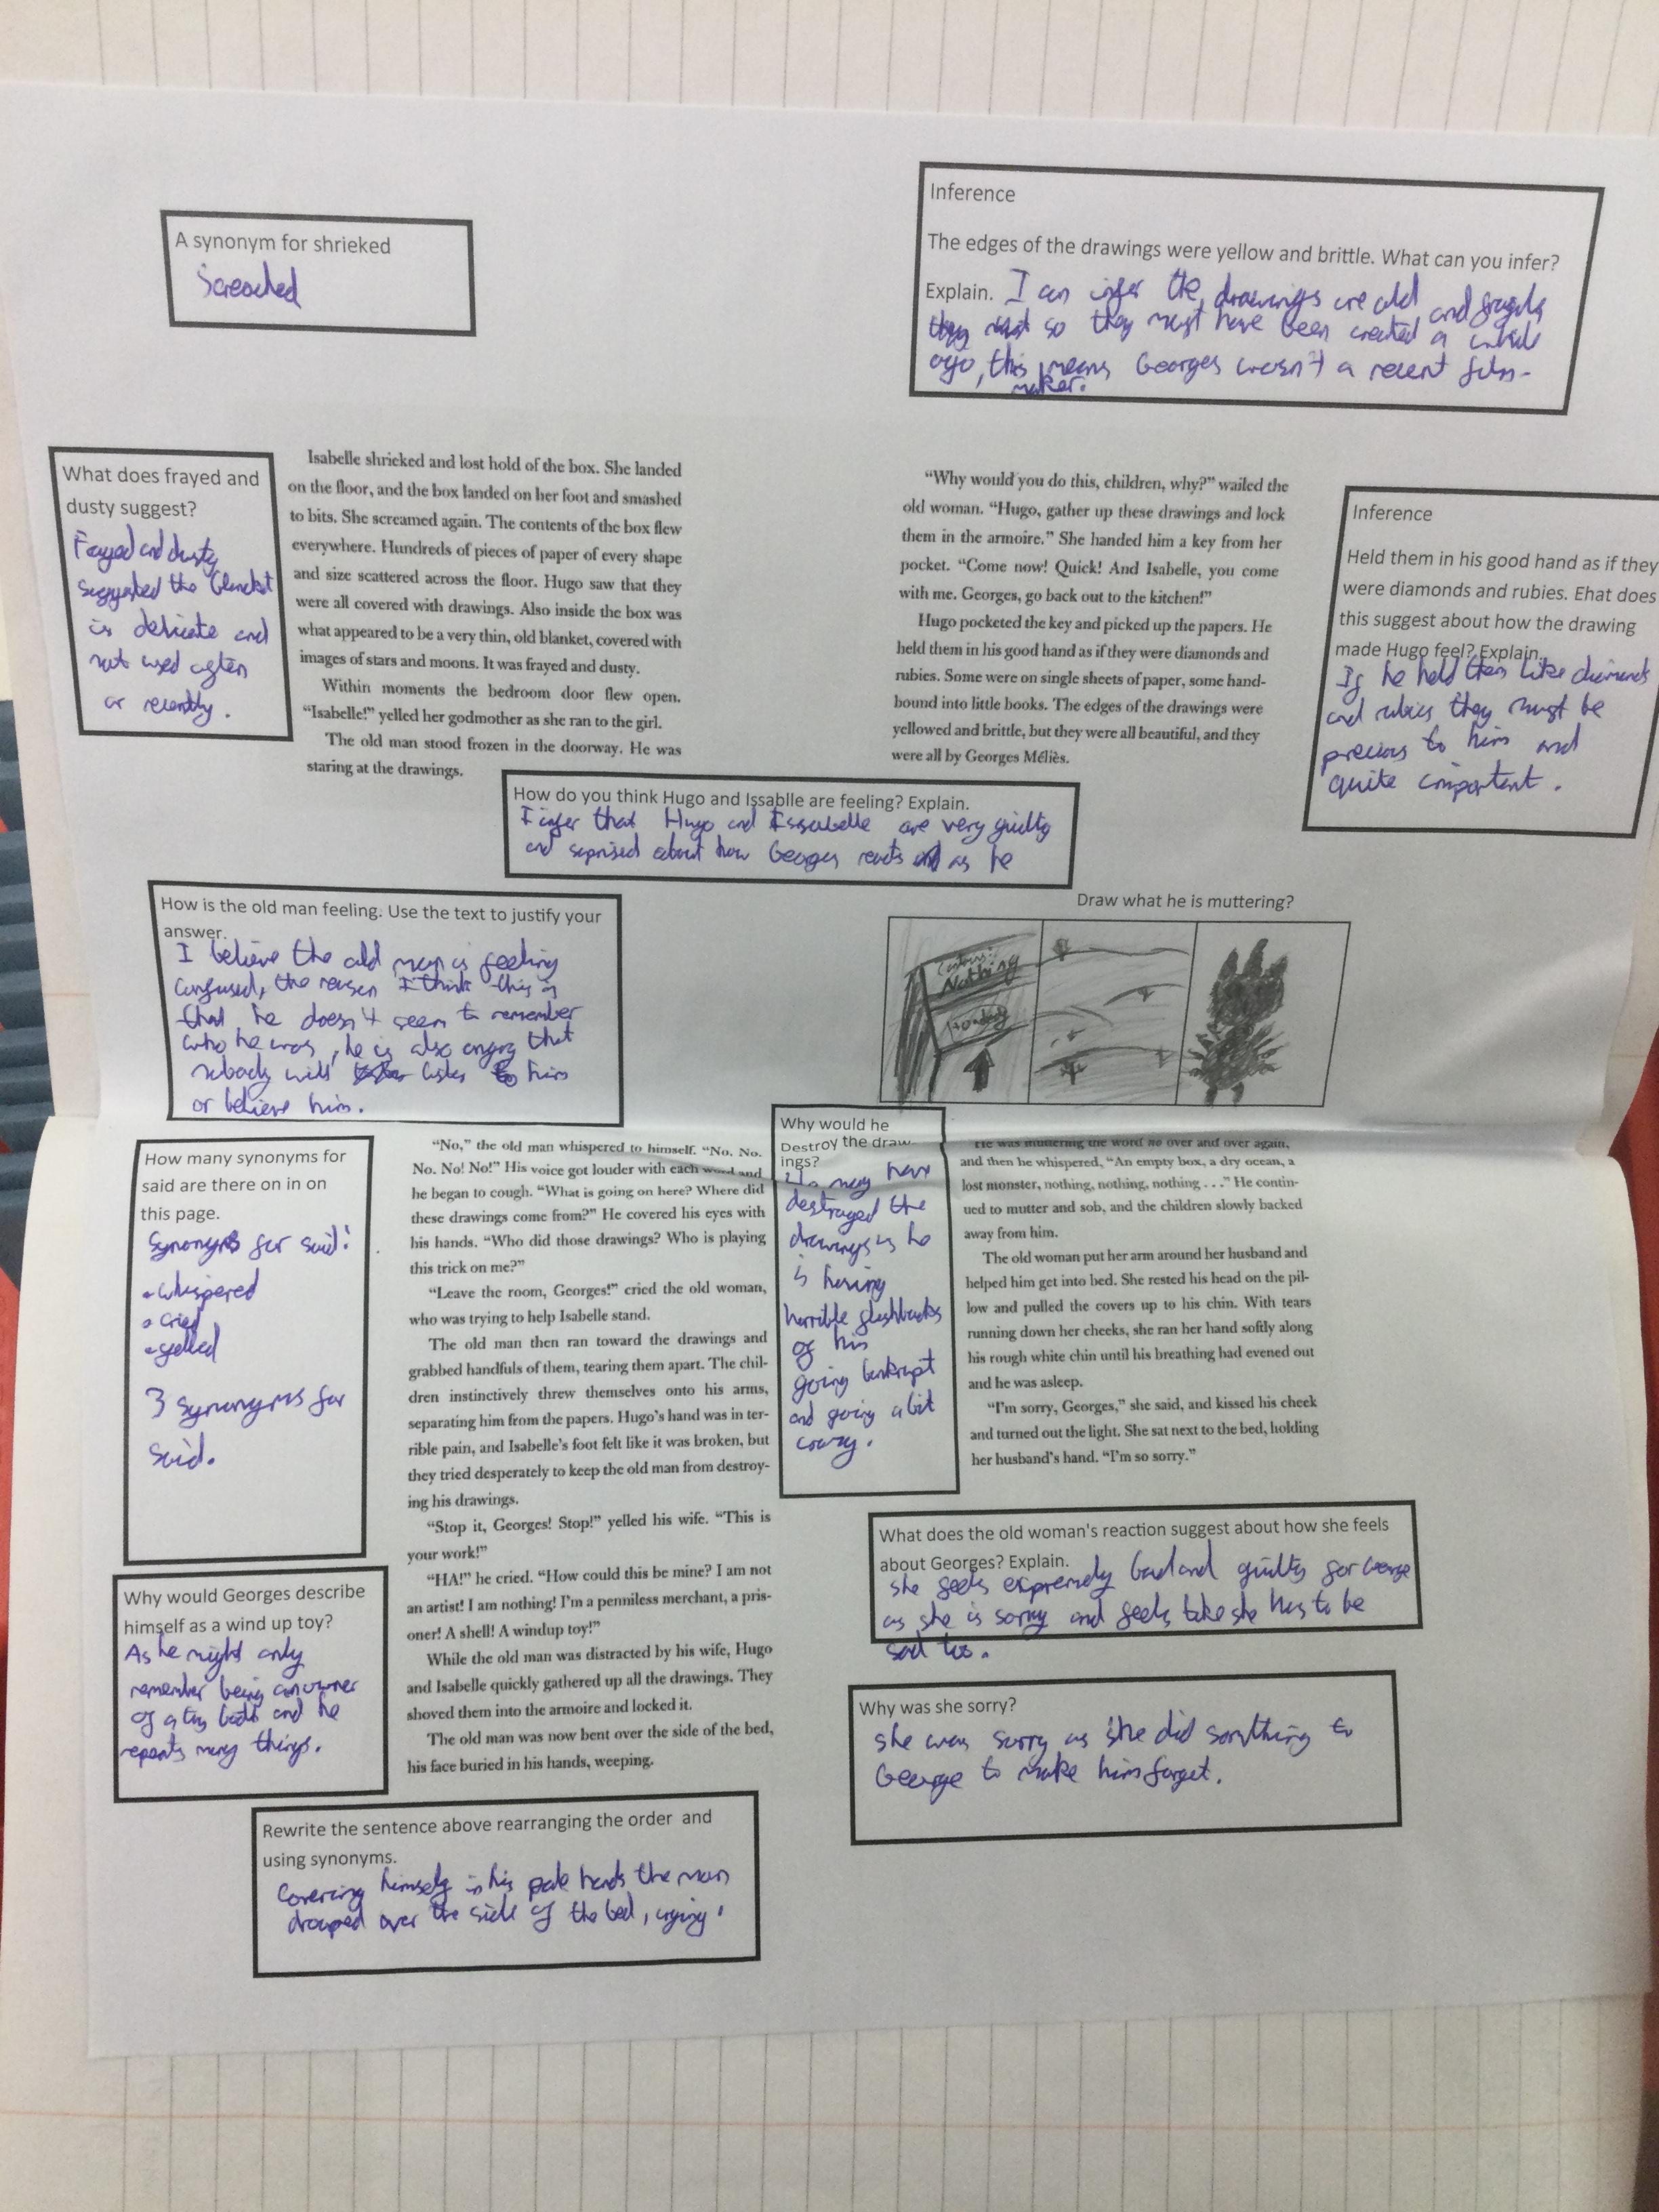 A synonym for shrieked
Screached
Inference
The edges of the drawings were yellow and brittle. What can you infer?
Explain. I can infer the drawings are old and fragile
so they must have been created a while
ago, this means Georges wasn't a recent film-
maker.
What does frayed and
dusty suggest?
Frayed and dusty
suggested the blancket
is delicate and
not used often
or recently.
Isabelle shrieked and lost hold of the box. She landed
on the floor, and the box landed on her foot and smashed
to bits. She screamed again. The contents of the box flew
everywhere. Hundreds of pieces of paper of every shape
and size scattered across the floor. Hugo saw that they
were all covered with drawings. Also inside the box was
what appeared to be a very thin, old blanket, covered with
images of stars and moons. It was frayed and dusty.
Within moments the bedroom door flew open.
“Isabelle!” yelled her godmother as she ran to the girl.
The old man stood frozen in the doorway. He was
staring at the drawings.
“Why would you do this, children, why?” wailed the
old woman. “Hugo, gather up these drawings and lock
them in the armoire.” She handed him a key from her
pocket. “Come now! Quick! And Isabelle, you come
with me. Georges, go back out to the kitchen!”
Hugo pocketed the key and picked up the papers. He
held them in his good hand as if they were diamonds and
rubies. Some were on single sheets of paper, some hand-
bound into little books. The edges of the drawings were
yellowed and brittle, but they were all beautiful, and they
were all by Georges Méliès.
Inference
Held them in his good hand as if they
were diamonds and rubies. Ehat does
this suggest about how the drawing
made Hugo feel? Explain.
If he held them like diamonds
and rubies they must be
precious to him and
quite important.
How do you think Hugo and Issablle are feeling? Explain.
I infer that Hugo and Issabelle are very guilty
and suprised about how Georges reacts as he
How is the old man feeling. Use the text to justify your
answer.
I believe the old man is feeling
confused, the reason I think this is
that he doesn't seem to remember
who he was, he is also angry that
nobody will listen to him
or believe him.
Draw what he is muttering?
Nothing
How many synonyms for
said are there on in on
this page.
Synonyms for said:
• whispered
• cried
• yelled
3 synonyms for
said.
“No,” the old man whispered to himself. “No. No.
No. No! No!” His voice got louder with each word and
he began to cough. “What is going on here? Where did
these drawings come from?” He covered his eyes with
his hands. “Who did those drawings? Who is playing
this trick on me?”
“Leave the room, Georges!” cried the old woman,
who was trying to help Isabelle stand.
The old man then ran toward the drawings and
grabbed handfuls of them, tearing them apart. The chil-
dren instinctively threw themselves onto his arms,
separating him from the papers. Hugo’s hand was in ter-
rible pain, and Isabelle’s foot felt like it was broken, but
they tried desperately to keep the old man from destroy-
ing his drawings.
“Stop it, Georges! Stop!” yelled his wife. “This is
your work!”
“HA!” he cried. “How could this be mine? I am not
an artist! I am nothing! I’m a penniless merchant, a pris-
oner! A shell! A windup toy!”
While the old man was distracted by his wife, Hugo
and Isabelle quickly gathered up all the drawings. They
shoved them into the armoire and locked it.
The old man was now bent over the side of the bed,
his face buried in his hands, weeping.
Why would he
Destroy the draw-
ings?
He may have
destroyed the
drawings as he
is having
horrible flashbacks
of his
going bankrupt
and going a bit
crazy.
He was muttering the word no over and over again,
and then he whispered, “An empty box, a dry ocean, a
lost monster, nothing, nothing, nothing . . .” He contin-
ued to mutter and sob, and the children slowly backed
away from him.
The old woman put her arm around her husband and
helped him get into bed. She rested his head on the pil-
low and pulled the covers up to his chin. With tears
running down her cheeks, she ran her hand softly along
his rough white chin until his breathing had evened out
and he was asleep.
“I’m sorry, Georges,” she said, and kissed his cheek
and turned out the light. She sat next to the bed, holding
her husband’s hand. “I’m so sorry.”
Why would Georges describe
himself as a wind up toy?
As he might only
remember being an owner
of a toy booth and he
repeats many things.
What does the old woman's reaction suggest about how she feels
about Georges? Explain.
she feels expremely bad and guilty for George
as she is sorry and feels like she has to be
sad too.
Why was she sorry?
she was sorry as she did somthing to
George to make him forget.
Rewrite the sentence above rearranging the order and
using synonyms.
Covering himself in his pale hands the man
drooped over the side of the bed, crying.